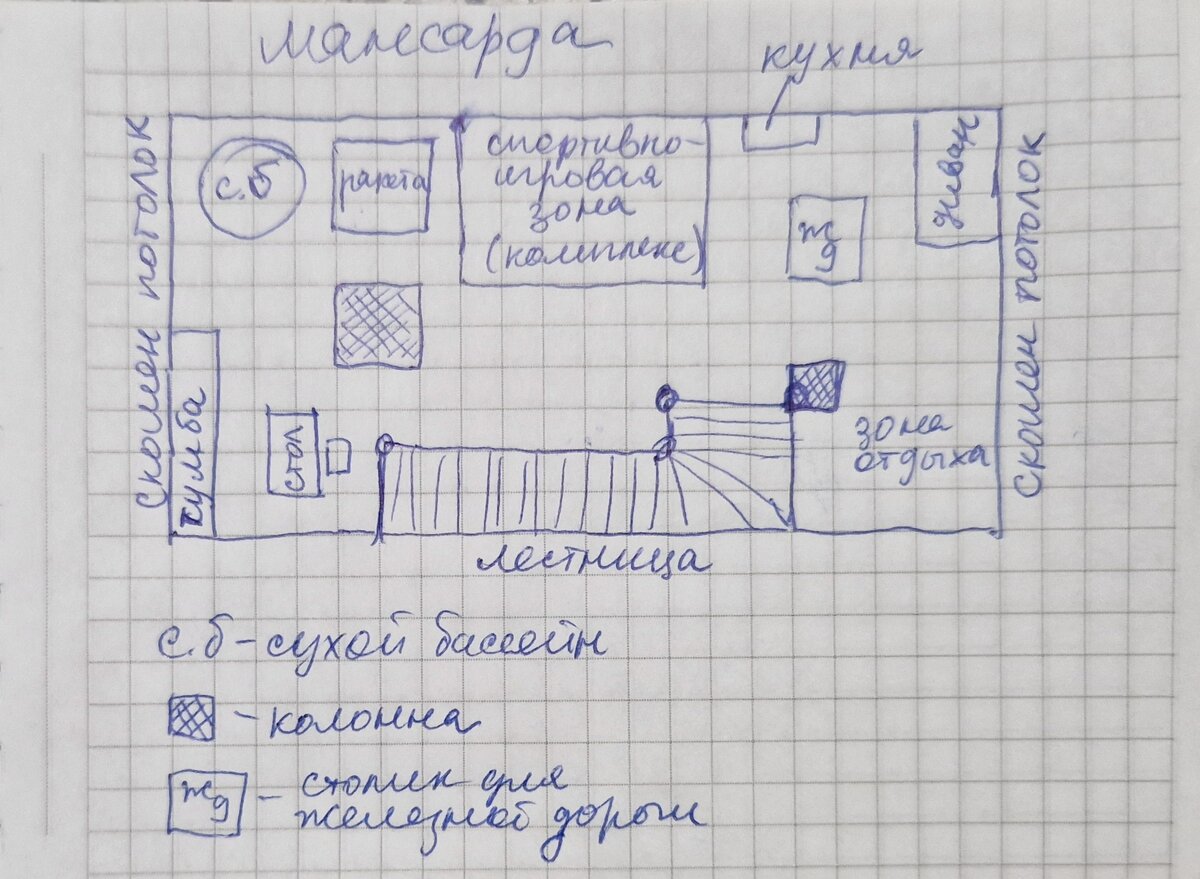 Мансарда
кухня
Скошен потолок
с.б
ракета
спортивно-
игровая
зона
(комплекс)
диван
жд
Скошен потолок
тумба
стол
зона
отдыха
лестница
с.б - сухой бассейн
- колонна
жд - столик для
железной дороги